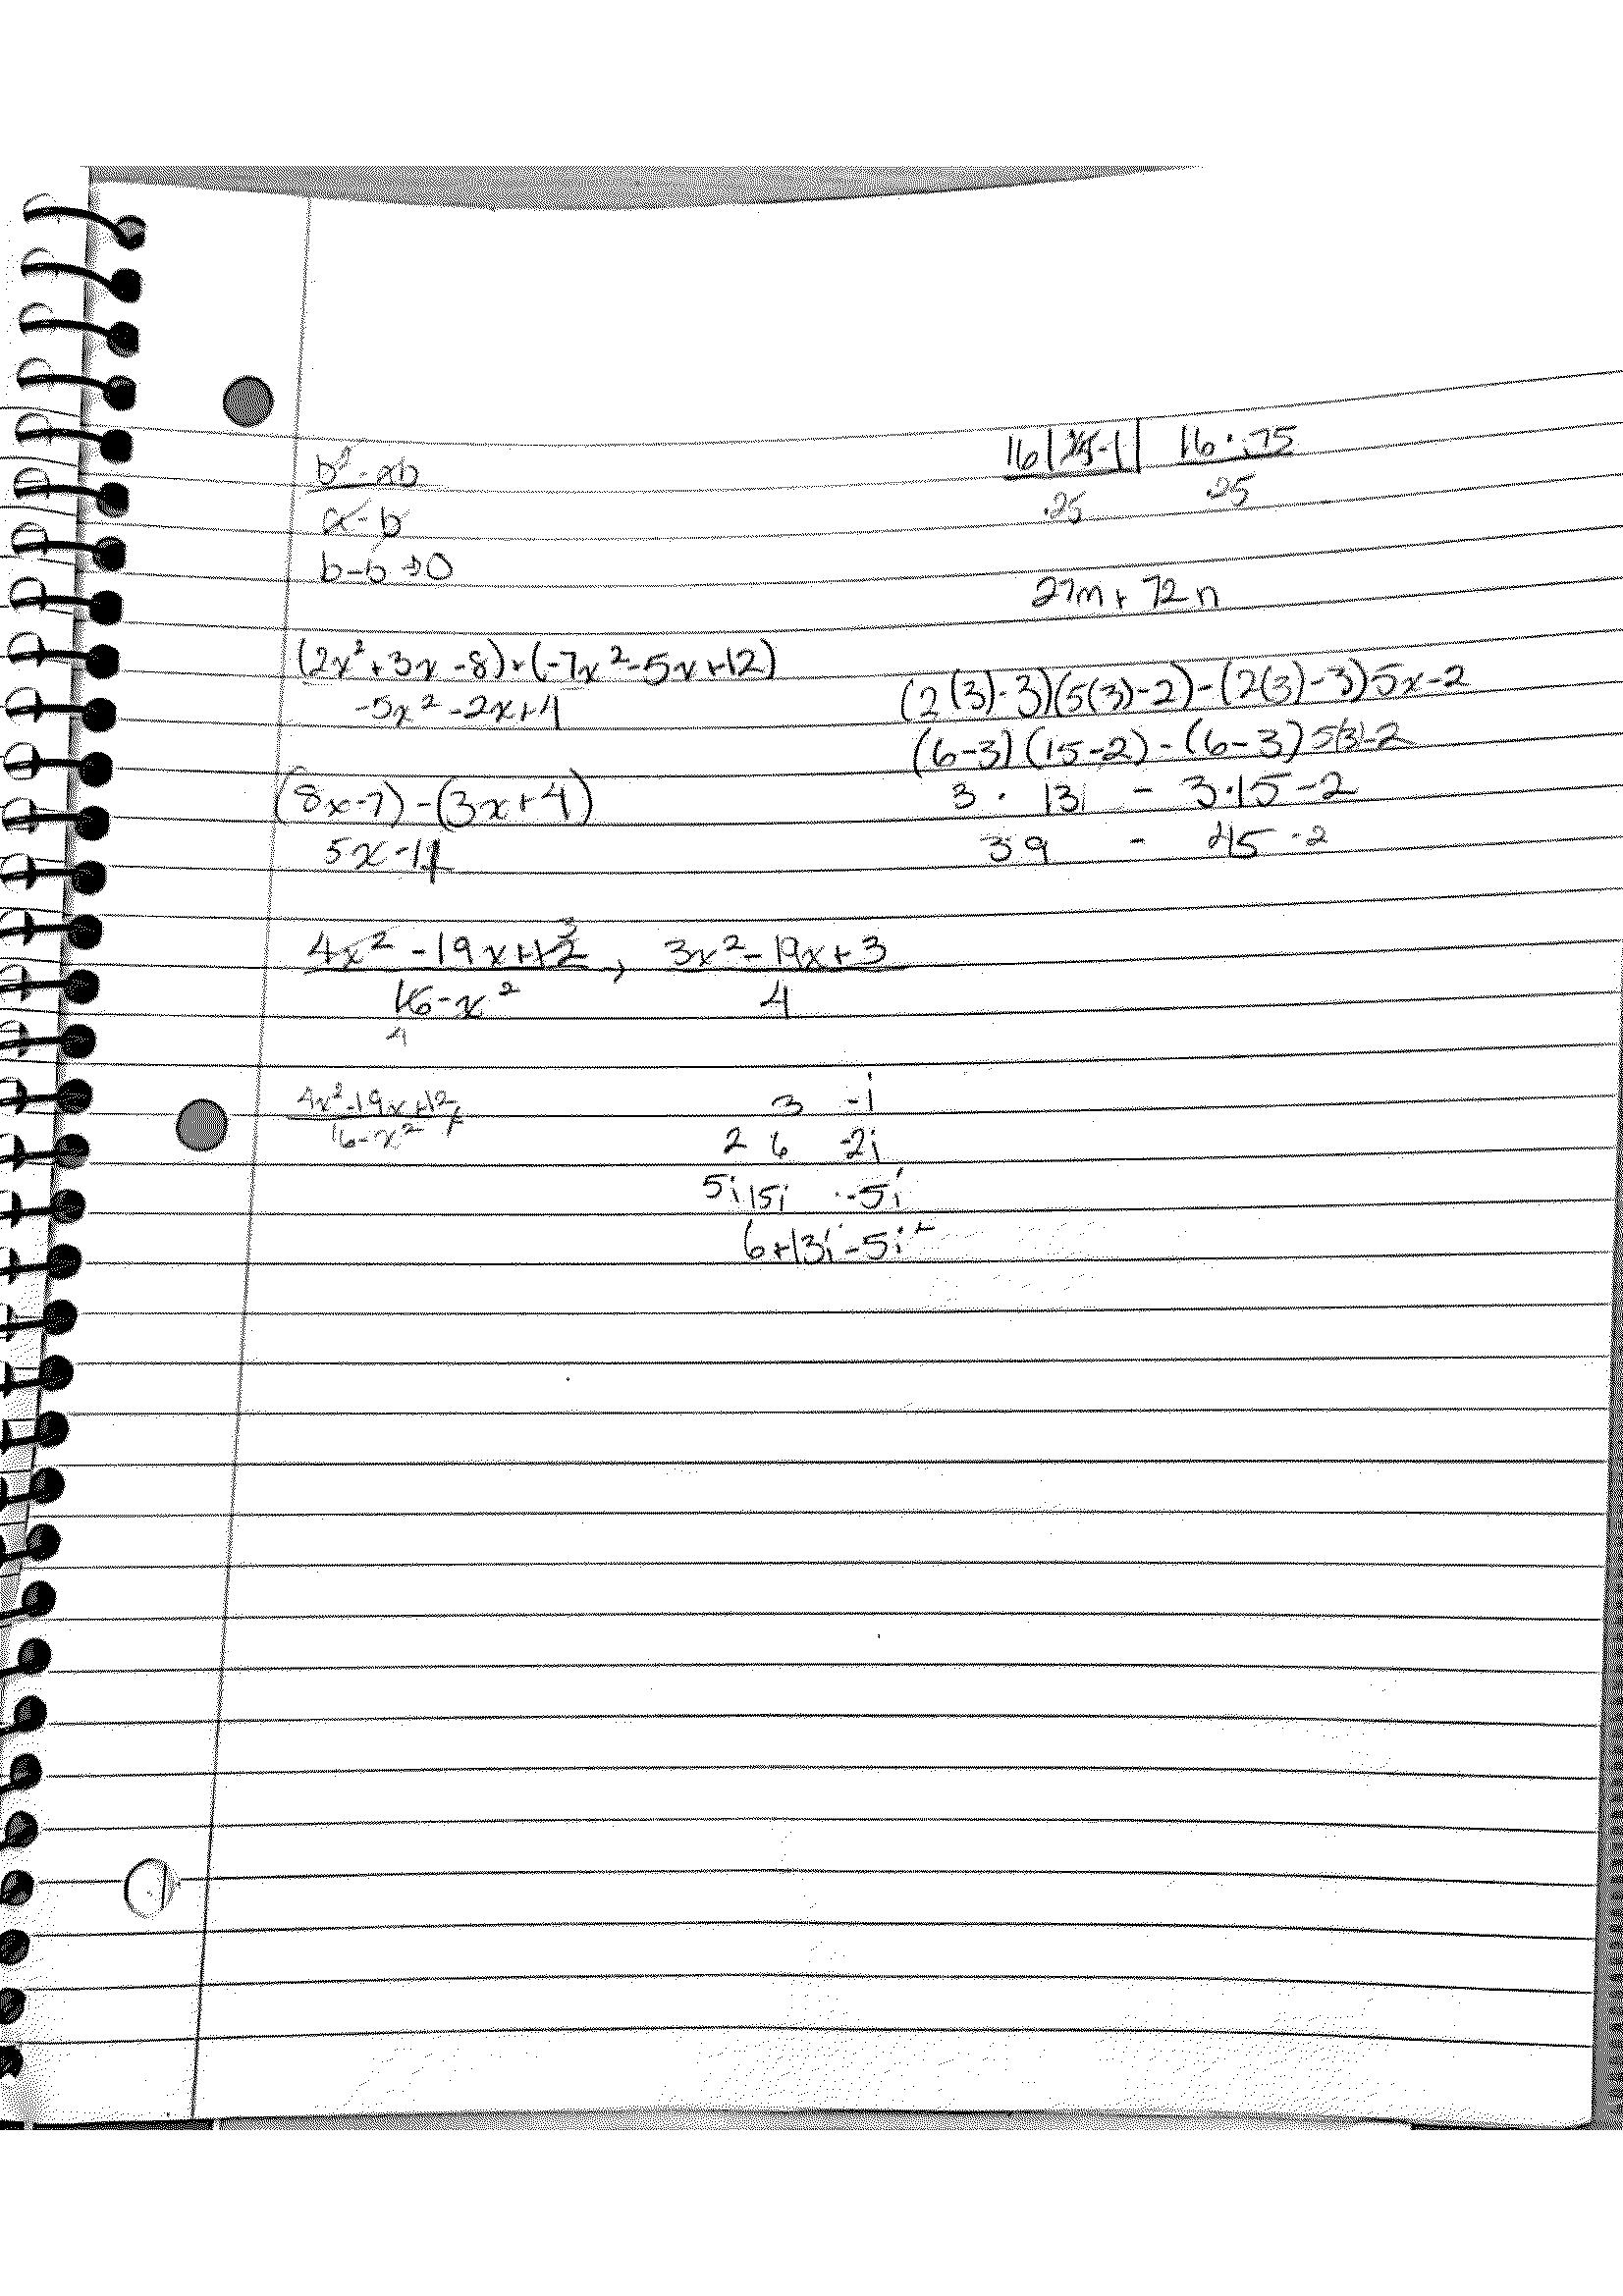 b² - ab
a - b
b-b →0
(2x²+3x-8)+(-7x²-5x+12)
-5x² -2x+4
(8x-7) -(3x+4)
5x-11
4x² -19x+12 3 , 3x²-19x+3
16-x² 4
4
4x²-19x+12
16-x²
16|.25-1| 16·.75
.25 .25
27m+72n
(2(3)-3)(5(3)-2)-(2(3)-3)5x-2
(6-3)(15-2)-(6-3)5(3)-2
3 · 13 - 3·15-2
39 - 45 -2
3 -i
2 6 -2i
5i 15i -5i
6+13i-5i²